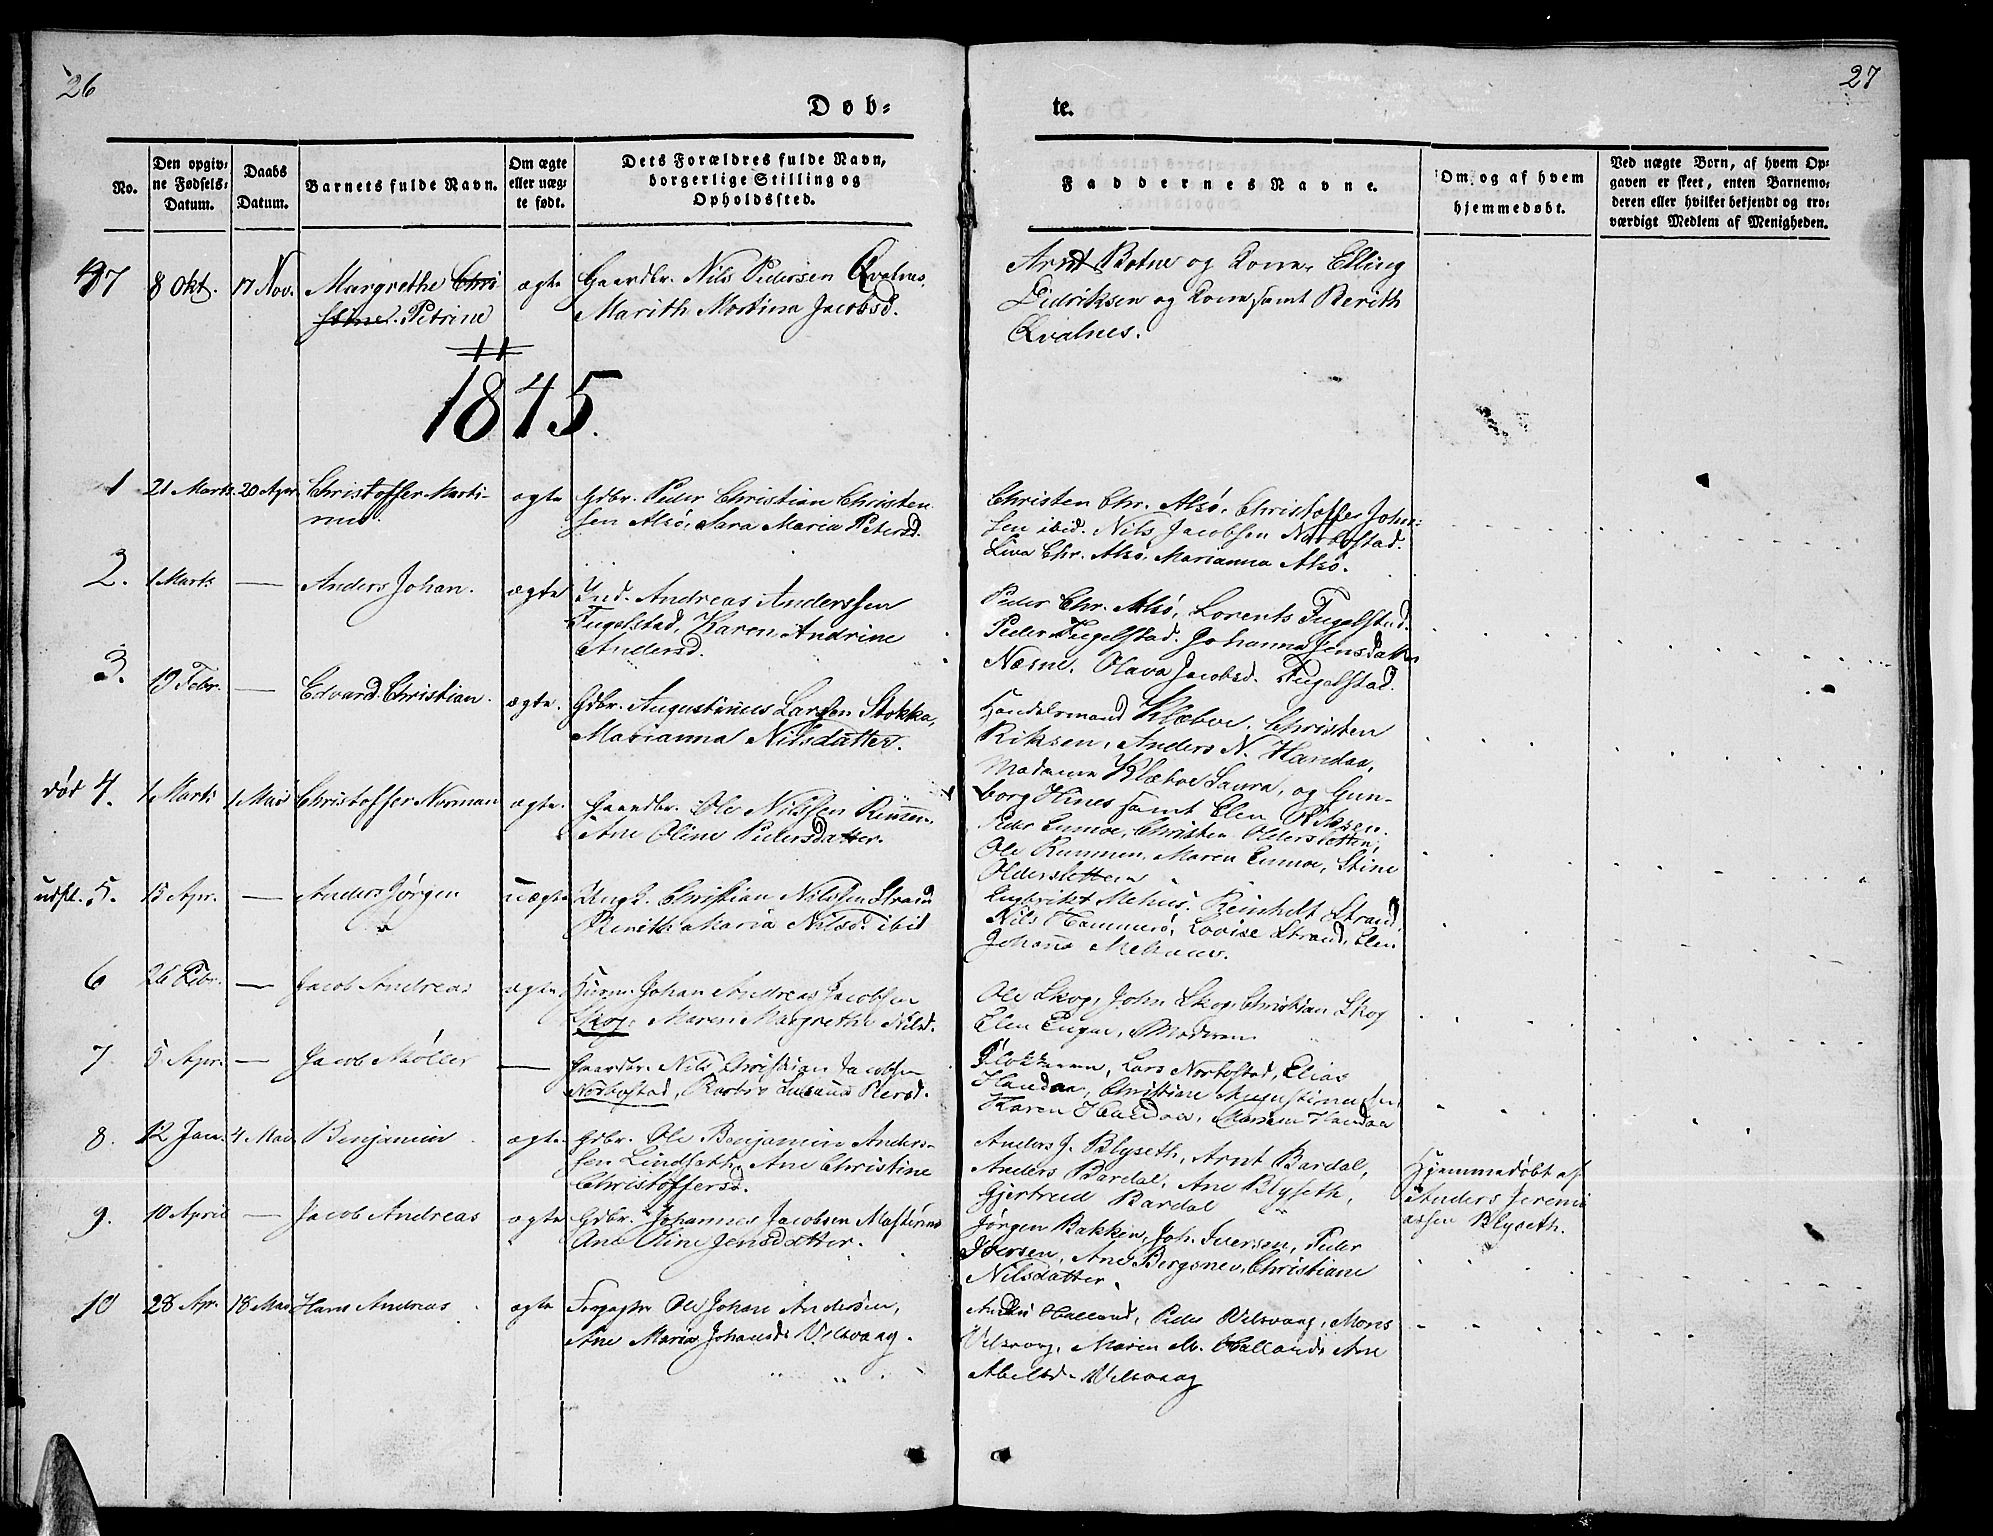 26
27
Døb=
te.
No.
Den opgiv=
ne Fødsels=
Datum.
Daabs
Datum.
Barnets fulde Navn.
Om ægte
eller uæg=
te født.
Dets Forældres fulde Navn,
borgerlige Stilling og
Opholdssted.
Faddernes Navne.
Om og af hvem
hjemmedøbt.
Ved uægte Børn, af hvem Op=
gaven er skeet, enten Barnemo=
deren eller hvilket bekjendt og tro=
værdigt Medlem af Menigheden.
8 Okt. 17 Nov. Margrethe Chri
stine. Petrine
ægte
Gaardbr. Nils Pedersen Qvalnes,
Marith Martina Jacobsd.
Arnt Botne og Kone, Elling
Didriksen og Kone samt Berith
Qvalnes.
1845.
1 21 Marts 20 Apr. Christoffer Marti-
nus.
ægte
Gdbr. Peder Christian Christen
sen Alsø, Sara Maria Petersd.
Christen Chr. Alsø, Christoffer John-
sen ibid. Nils Jacobsen Norbostad.
Lina Chr. Alsø, Marianna Alsø.
2. 1 Marts — Anders Johan.
ægte
Ind. Andreas Anderssen
Fugelstad, Karen Andrine
Andersd.
Peder Chr. Alsø, Lorents Fugelstad.
Peder Fugelstad. Johanna Jensdatter
Næsne. Olava Jacobsd. Fugelstad.
3. 19 Febr. — Edvard Christian.
ægte.
Gdbr. Augustinus Larsen Stokka,
Marianna Nilsdatter.
Handelsmand Klæboe, Christen
Riksen, Anders N. Handaa,
Madame Klæboe Laura, og Gun-
borg Hines samt Elen Riksen.
død 4. 1 Marts 1 Mai Christoffer Norman
ægte.
Gaardbr. Ole Nilssen
Ane Oline Pedersdatter.
Peder Enmoe, Christen Oldersletten,
Ole Maren Enmoe, Stine
Oldersletten
5. 15 Apr. — Anders Jørgen
uægte
Ungk. Christian Nilssen Strand
Berith Maria Nilsd. ibid
Reinholt Strand,
Nils Hammerø, Lovise Strand, Elen
Johanna
6 26 Febr. — Jacob Andreas
ægte.
Huusm. Johan Andreas Jacobsen
Skog, Maren Margrethe Nilsd.
Ole Skog, John Skog, Christian Skog
Elen Moderen
7. 5 Apr. — Jacob Møller
—
Gaardbr. Nils Christian Jacobsen
Norbostad,
Klokkeren, Lars Norbostad, Elias
Handaa, Christian Augustinussen,
Karen Handaa, Maren Handaa
8. 12 Jan. 4 Mai Benjamin
ægte.
Gdbr. Ole Benjamin Anders-
sen Lindseth, Ane Christine
Christoffersd.
Anders J. Blyseth, Arnt Bardal,
Anders Bardal, Ane Blyseth,
Gjertrud Bardal
Hjemmedøbt af
Anders Jeremi
assen Blyseth.
9. 10 April — Jacob Andreas
ægte
Gdbr. Johannes Jacobsen
Ane Oline Jensdatter.
Jørgen Bakken, Joh. Iversen, Peder
Iversen, Ane Bergsnev, Christiane
Nilsdatter.
10 28 Apr. 18 Mai Hans Andreas
ægte
Forpagter Ole Johan Andersen,
Ane Maria Johansd. Velsvaag.
Halland, Peder Velsvaag, Mons
Velsvaag, Maren M. Halland, Ane
Abelsd. Velsvaag